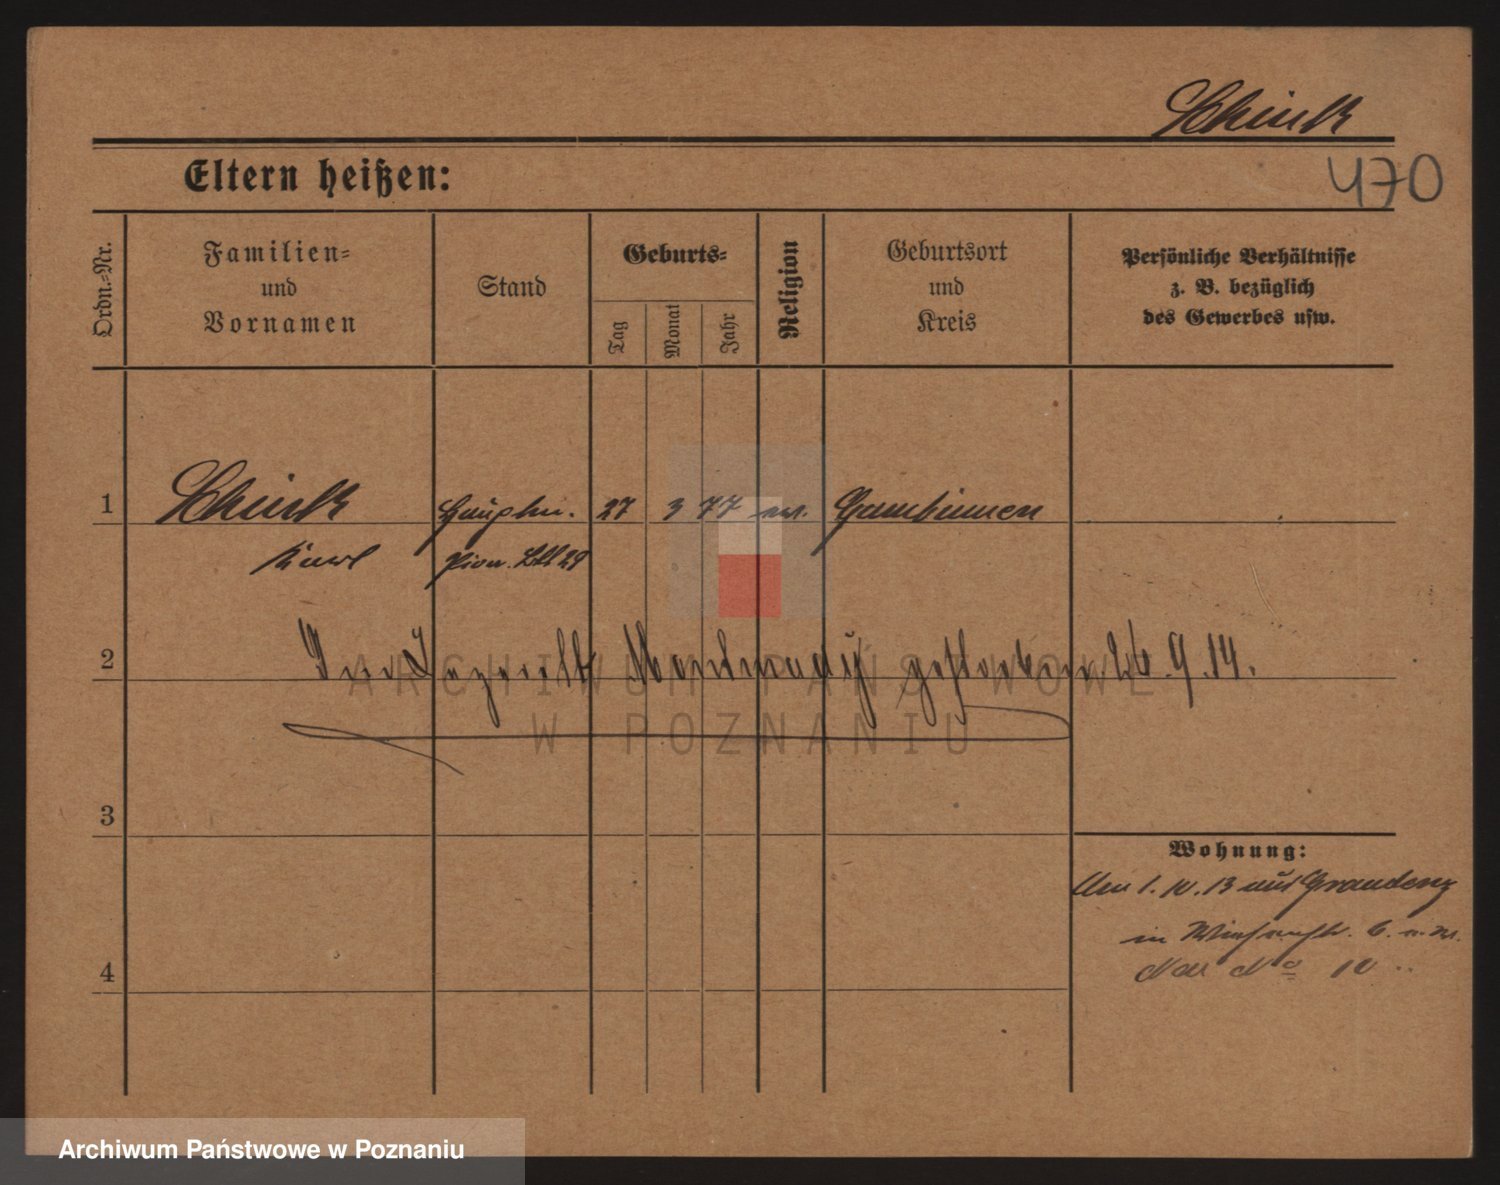 Schinck
470
Eltern heißen:
Ordn.-Nr.
Familien-
und
Vornamen
Stand
Geburts-
Tag
Monat
Jahr
Religion
Geburtsort
und
Kreis
Persönliche Verhältnisse
z. B. bezüglich
des Gewerbes usw.
1
Schinck
Hauptm. 27 3 77 ev. Gumbinnen
Kurt
Pion. Btl 29
2
gestorben 26.9.14.
ARCHIWUM PAŃSTWOWE
W POZNANIU
3
Wohnung:
Am 1.10.13 aus Graudenz
in
10
4
Archiwum Państwowe w Poznaniu